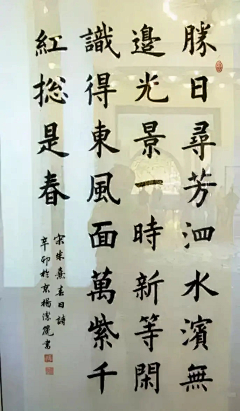 勝日尋芳泗水濱無
邊光景一時新等閑
識得東風面萬紫千
紅総是春
宋朱熹春日詩
辛卯於京楊書